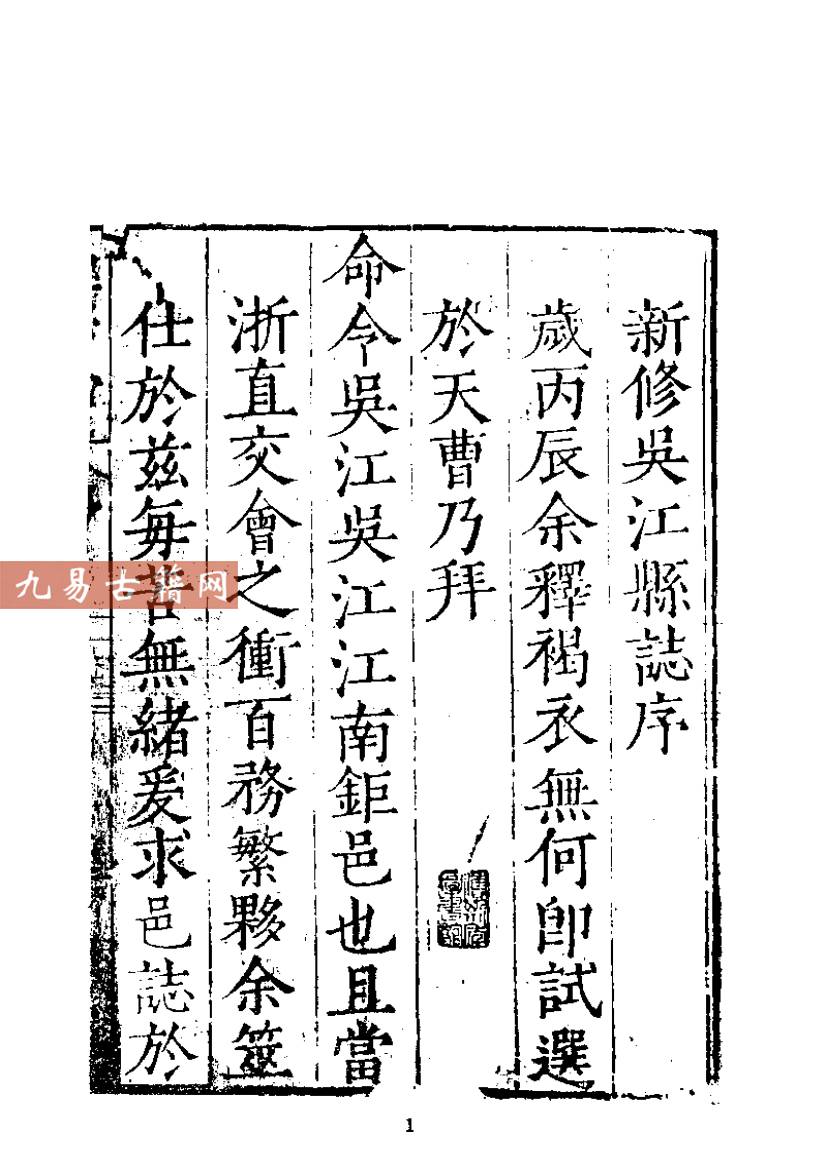 新修吳江縣誌序
歲丙辰余釋褐衣無何即試選
於天曹乃拜
命令吳江吳江江南鉅邑也且當
浙直交會之衝百務繁夥余筮
仕於茲每苦無緒爰求邑誌於
九易古籍网
1